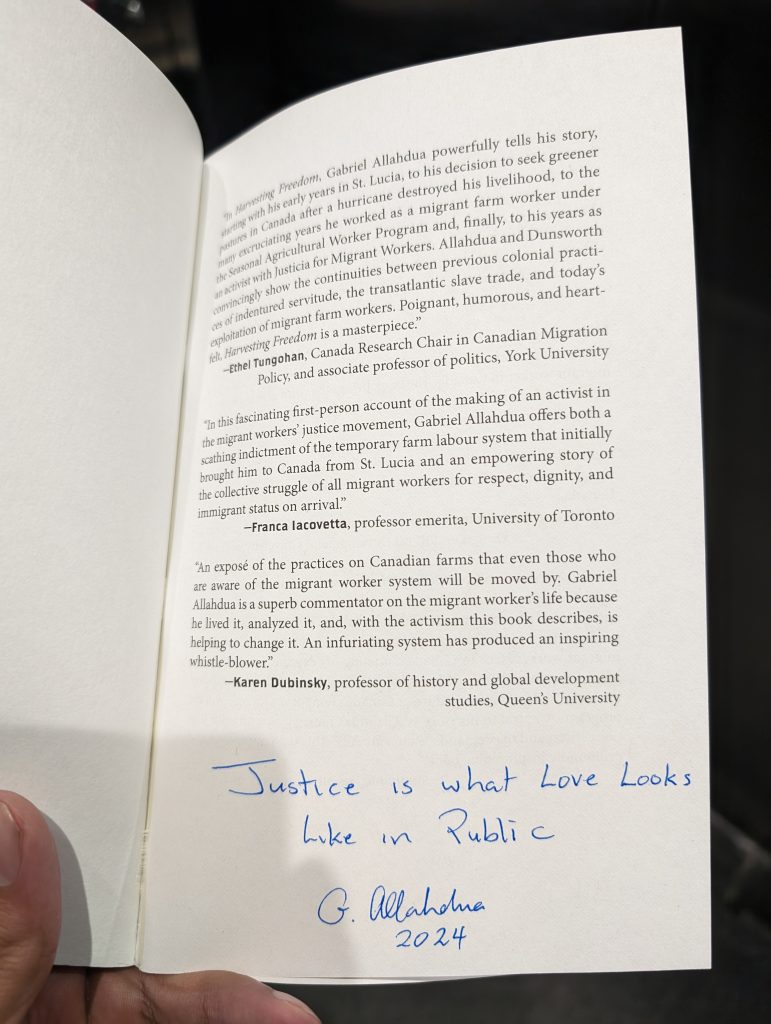 "In Harvesting Freedom, Gabriel Allahdua powerfully tells his story,
starting with his early years in St. Lucia, to his decision to seek greener
pastures in Canada after a hurricane destroyed his livelihood, to the
many excruciating years he worked as a migrant farm worker under
the Seasonal Agricultural Worker Program and, finally, to his years as
an activist with Justicia for Migrant Workers. Allahdua and Dunsworth
convincingly show the continuities between previous colonial practi-
ces of indentured servitude, the transatlantic slave trade, and today's
exploitation of migrant farm workers. Poignant, humorous, and heart-
felt, Harvesting Freedom is a masterpiece."
—Ethel Tungohan, Canada Research Chair in Canadian Migration
Policy, and associate professor of politics, York University
"In this fascinating first-person account of the making of an activist in
the migrant workers' justice movement, Gabriel Allahdua offers both a
scathing indictment of the temporary farm labour system that initially
brought him to Canada from St. Lucia and an empowering story of
the collective struggle of all migrant workers for respect, dignity, and
immigrant status on arrival."
—Franca Iacovetta, professor emerita, University of Toronto
"An exposé of the practices on Canadian farms that even those who
are aware of the migrant worker system will be moved by. Gabriel
Allahdua is a superb commentator on the migrant worker's life because
he lived it, analyzed it, and, with the activism this book describes, is
helping to change it. An infuriating system has produced an inspiring
whistle-blower."
—Karen Dubinsky, professor of history and global development
studies, Queen's University
Justice is what Love Looks
Like in Public
G. Allahdua
2024